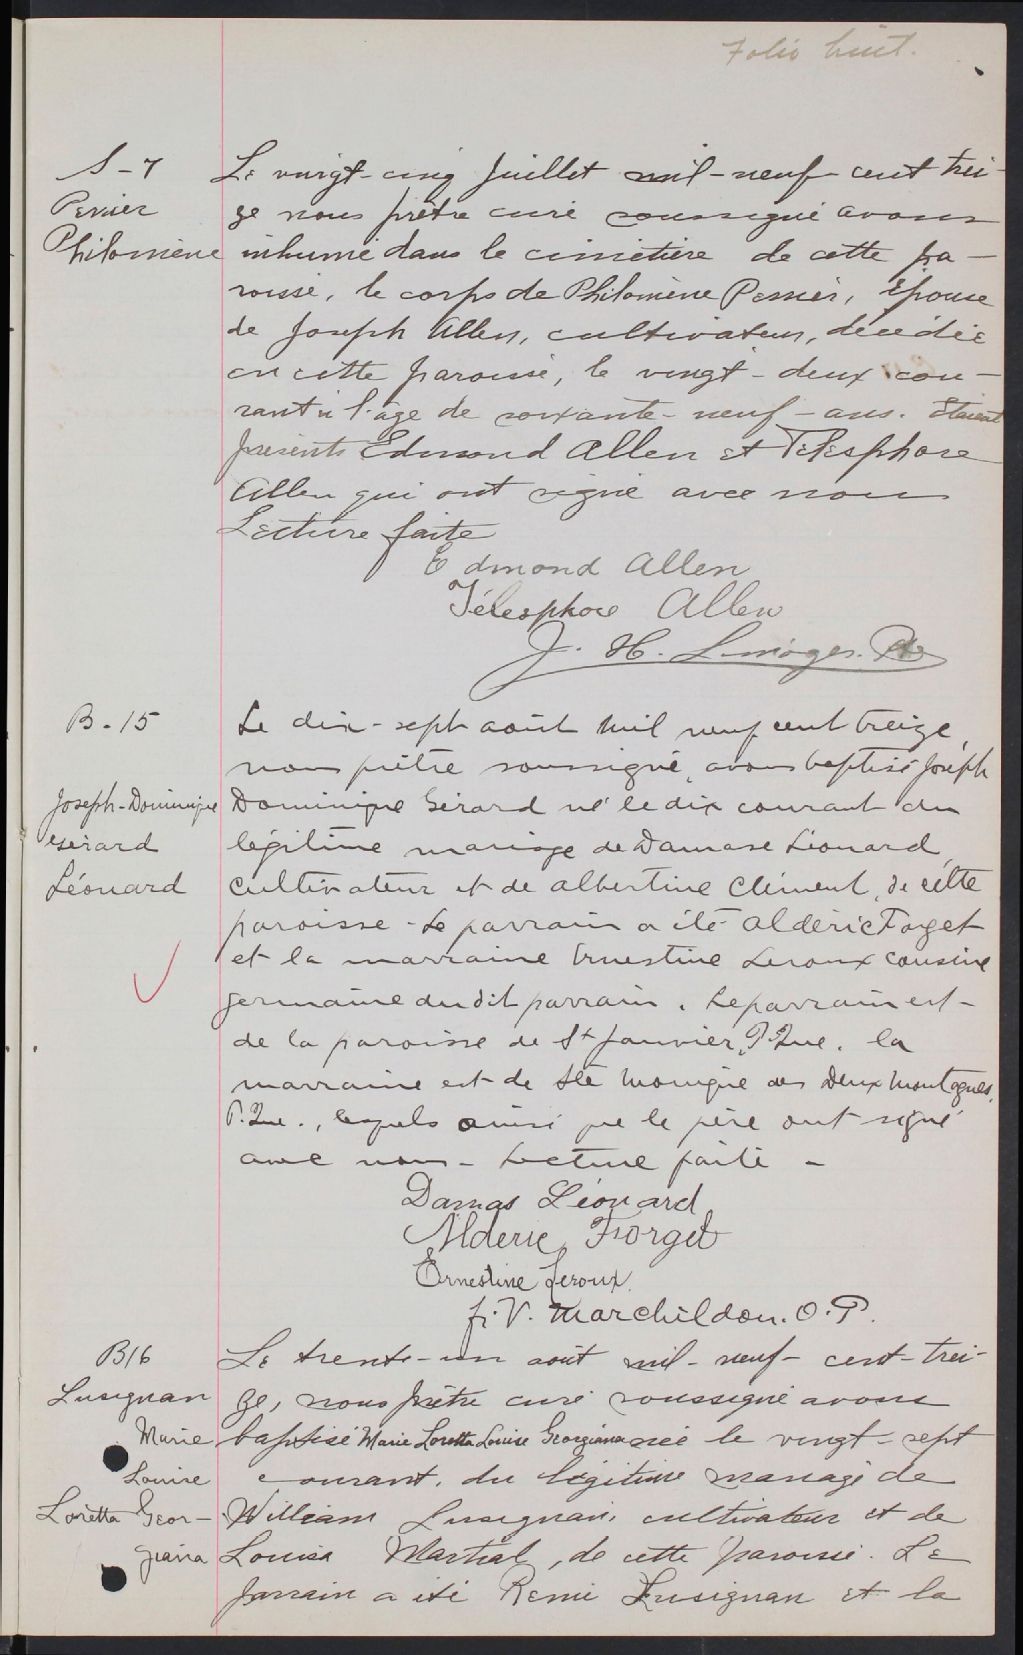 Folio huit.
S-7
Perrier
Philomène
Le vingt-cinq Juillet mil-neuf-cent trei-
ze nous prêtre curé soussigné avons
inhumé dans le cimetière de cette pa-
roisse, le corps de Philomène Perrier, épouse
de Joseph Allen, cultivateur, décédée
en cette paroisse, le vingt-deux cou-
rant à l'âge de soixante-neuf-ans. Etaient
présents Edmond Allen et Télesphore
Allen qui ont signé avec nous
Lecture faite
Edmond Allen
Télesphore Allen
J. H. Limoges. Ptre
B-15
Joseph-Dominique
Gérard
Léonard
Le dix-sept août mil neuf cent treize,
nous prêtre soussigné, avons baptisé Joseph
Dominique Gérard né le dix courant du
légitime mariage de Damase Léonard,
cultivateur et de Albertine Clément, de cette
paroisse - Le parrain a été Aldéric Forget
et la marraine Ernestine Leroux cousine
germaine du dit parrain. Le parrain est
de la paroisse de St Janvier, P. Que. la
marraine est de Ste Monique des Deux Montagnes,
P. Que., lesquels ainsi que le père ont signé
avec nous - Lecture faite -
Damas Léonard
Alderic Forget
Ernestine Leroux
fr. V. Marchildon. O.P.
B16
Lusignan
Marie
Louise
Loretta Geor-
giana
Le trente-un août mil-neuf-cent-trei-
ze, nous prêtre curé soussigné avons
baptisé Marie Loretta Louise Georgiana née le vingt-sept
courant, du légitime mariage de
William Lusignan, cultivateur et de
Louisa Martial, de cette paroisse. Le
parrain a été Remi Lusignan et la